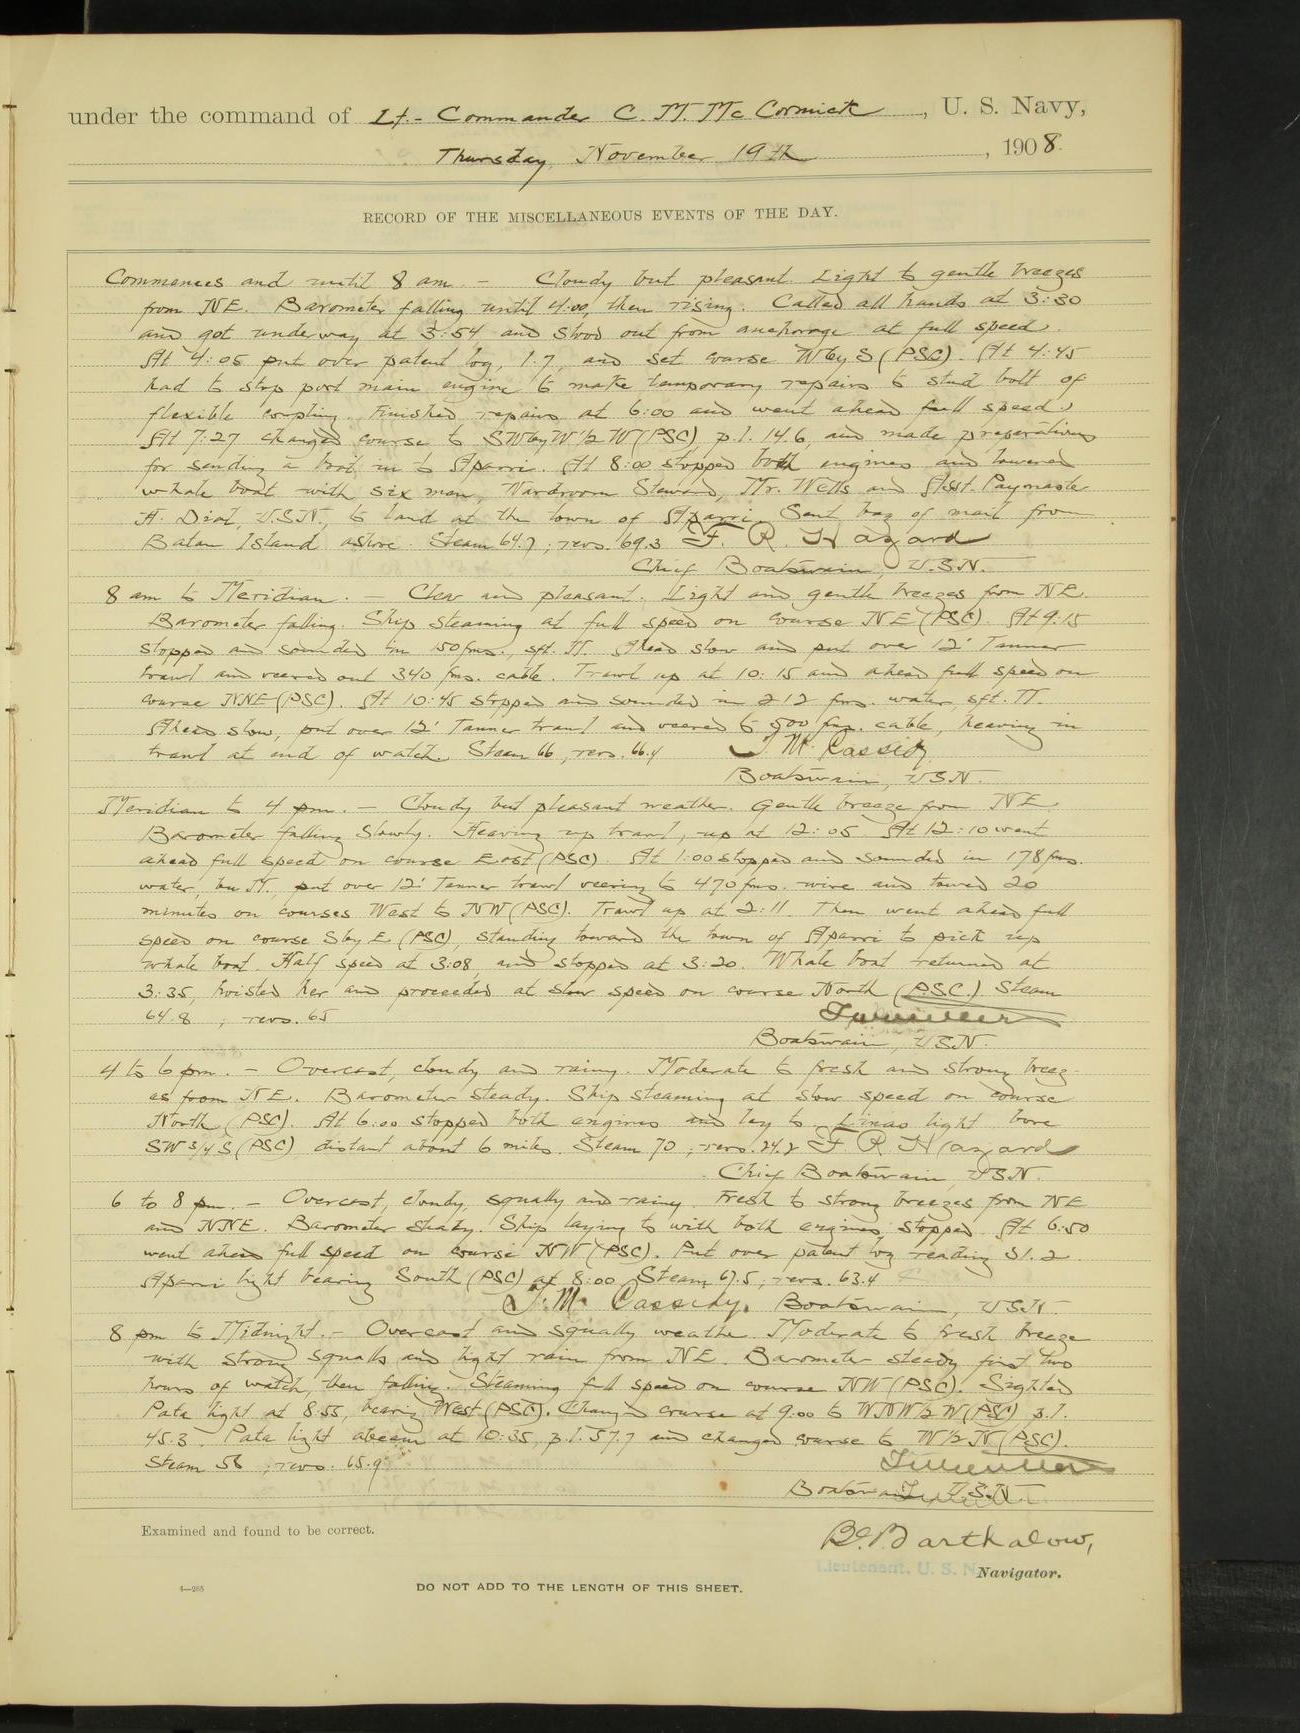 under the command of Lt.- Commander C. M. McCormick, U. S. Navy,
Thursday, November 19th, 1908
RECORD OF THE MISCELLANEOUS EVENTS OF THE DAY.
Commences and until 8 am. - Cloudy but pleasant. Light to gentle breezes
from NE. Barometer falling until 4:00, then rising. Called all hands at 3:30
and got underway at 3:54 and stood out from anchorage at full speed.
At 4:05 put over patent log, 1.7, and set course WbyS (PSC). At 4:45
had to stop port main engine to make temporary repairs to stud bolt of
flexible coupling. Finished repairs at 6:00 and went ahead full speed.
At 7:27 changed course to SWbyW 1/2 W (PSC) p.l. 14.6, and made preparations
for sending a boat in to Aparri. At 8:00 stopped both engines and lowered
whale boat with six men, Wardroom Steward, Mr. Wells and Asst. Paymaster
H. Dial, USN., to land at the town of Aparri. Sent bag of mail from
Batan Island ashore. Steam 64.7; revs. 69.3 F. R. Hazard
Chief Boatswain, U.S.N.
8 am to Meridian. - Clear and pleasant. Light and gentle breezes from NE.
Barometer falling. Ship steaming at full speed on course NE (PSC). At 9:15
stopped and sounded in 150 fms., sft. M. Ahead slow and put over 12' Tanner
trawl and veered out 340 fms. cable. Trawl up at 10:15 and ahead full speed on
course NNE (PSC). At 10:45 stopped and sounded in 212 fms. water, sft. M.
Ahead slow, put over 12' Tanner trawl and veered to 500 fms. cable, heaving in
trawl at end of watch. Steam 66; revs. 66.4 J. M. Cassidy
Boatswain, USN.
Meridian to 4 pm. - Cloudy but pleasant weather. Gentle breeze from NE.
Barometer falling slowly. Heaving up trawl, up at 12:05. At 12:10 went
ahead full speed on course East (PSC). At 1:00 stopped and sounded in 178 fms.
water, bu M., put over 12' Tanner trawl veering to 470 fms. wire and towed 20
minutes on courses West to NW (PSC). Trawl up at 2:11. Then went ahead full
speed on course SbyE (PSC), standing toward the town of Aparri to pick up
whale boat. Half speed at 3:08, and stopped at 3:20. Whale boat returned at
3:35, hoisted her and proceeded at slow speed on course North (PSC.). Steam
64.8; revs. 65
Boatswain, USN.
4 to 6 pm. - Overcast, cloudy and rainy. Moderate to fresh and strong breez-
es from NE. Barometer steady. Ship steaming at slow speed on course
North (PSC). At 6:00 stopped both engines and lay to. Linao light bore
SW 3/4 S (PSC) distant about 6 miles. Steam 70; revs. 24.2 F. R. Hazard
Chief Boatswain, USN.
6 to 8 pm. - Overcast, cloudy, squally and rainy. Fresh to strong breezes from NE
and NNE. Barometer steady. Ship laying to with both engines stopped. At 6:50
went ahead full speed on course NW (PSC). Put over patent log reading 31.2
Aparri light bearing South (PSC) at 8:00. Steam 67.5; revs. 63.4
J. M. Cassidy, Boatswain, USN.
8 pm to Midnight. - Overcast and squally weather. Moderate to fresh breeze
with strong squalls and light rain from NE. Barometer steady first two
hours of watch, then falling. Steaming full speed on course NW (PSC). Sighted
Pata light at 8:55, bearing West (PSC). Changed course at 9:00 to WNW 1/2 W (PSC) p.l.
45.3. Pata light abeam at 10:35, p.l. 57.7 and changed course to W 1/2 N (PSC).
Steam 58; revs. 65.9
Boatswain, U.S.N.
Examined and found to be correct.
Barthalow,
Lieutenant, U. S. N. Navigator.
4-265
DO NOT ADD TO THE LENGTH OF THIS SHEET.